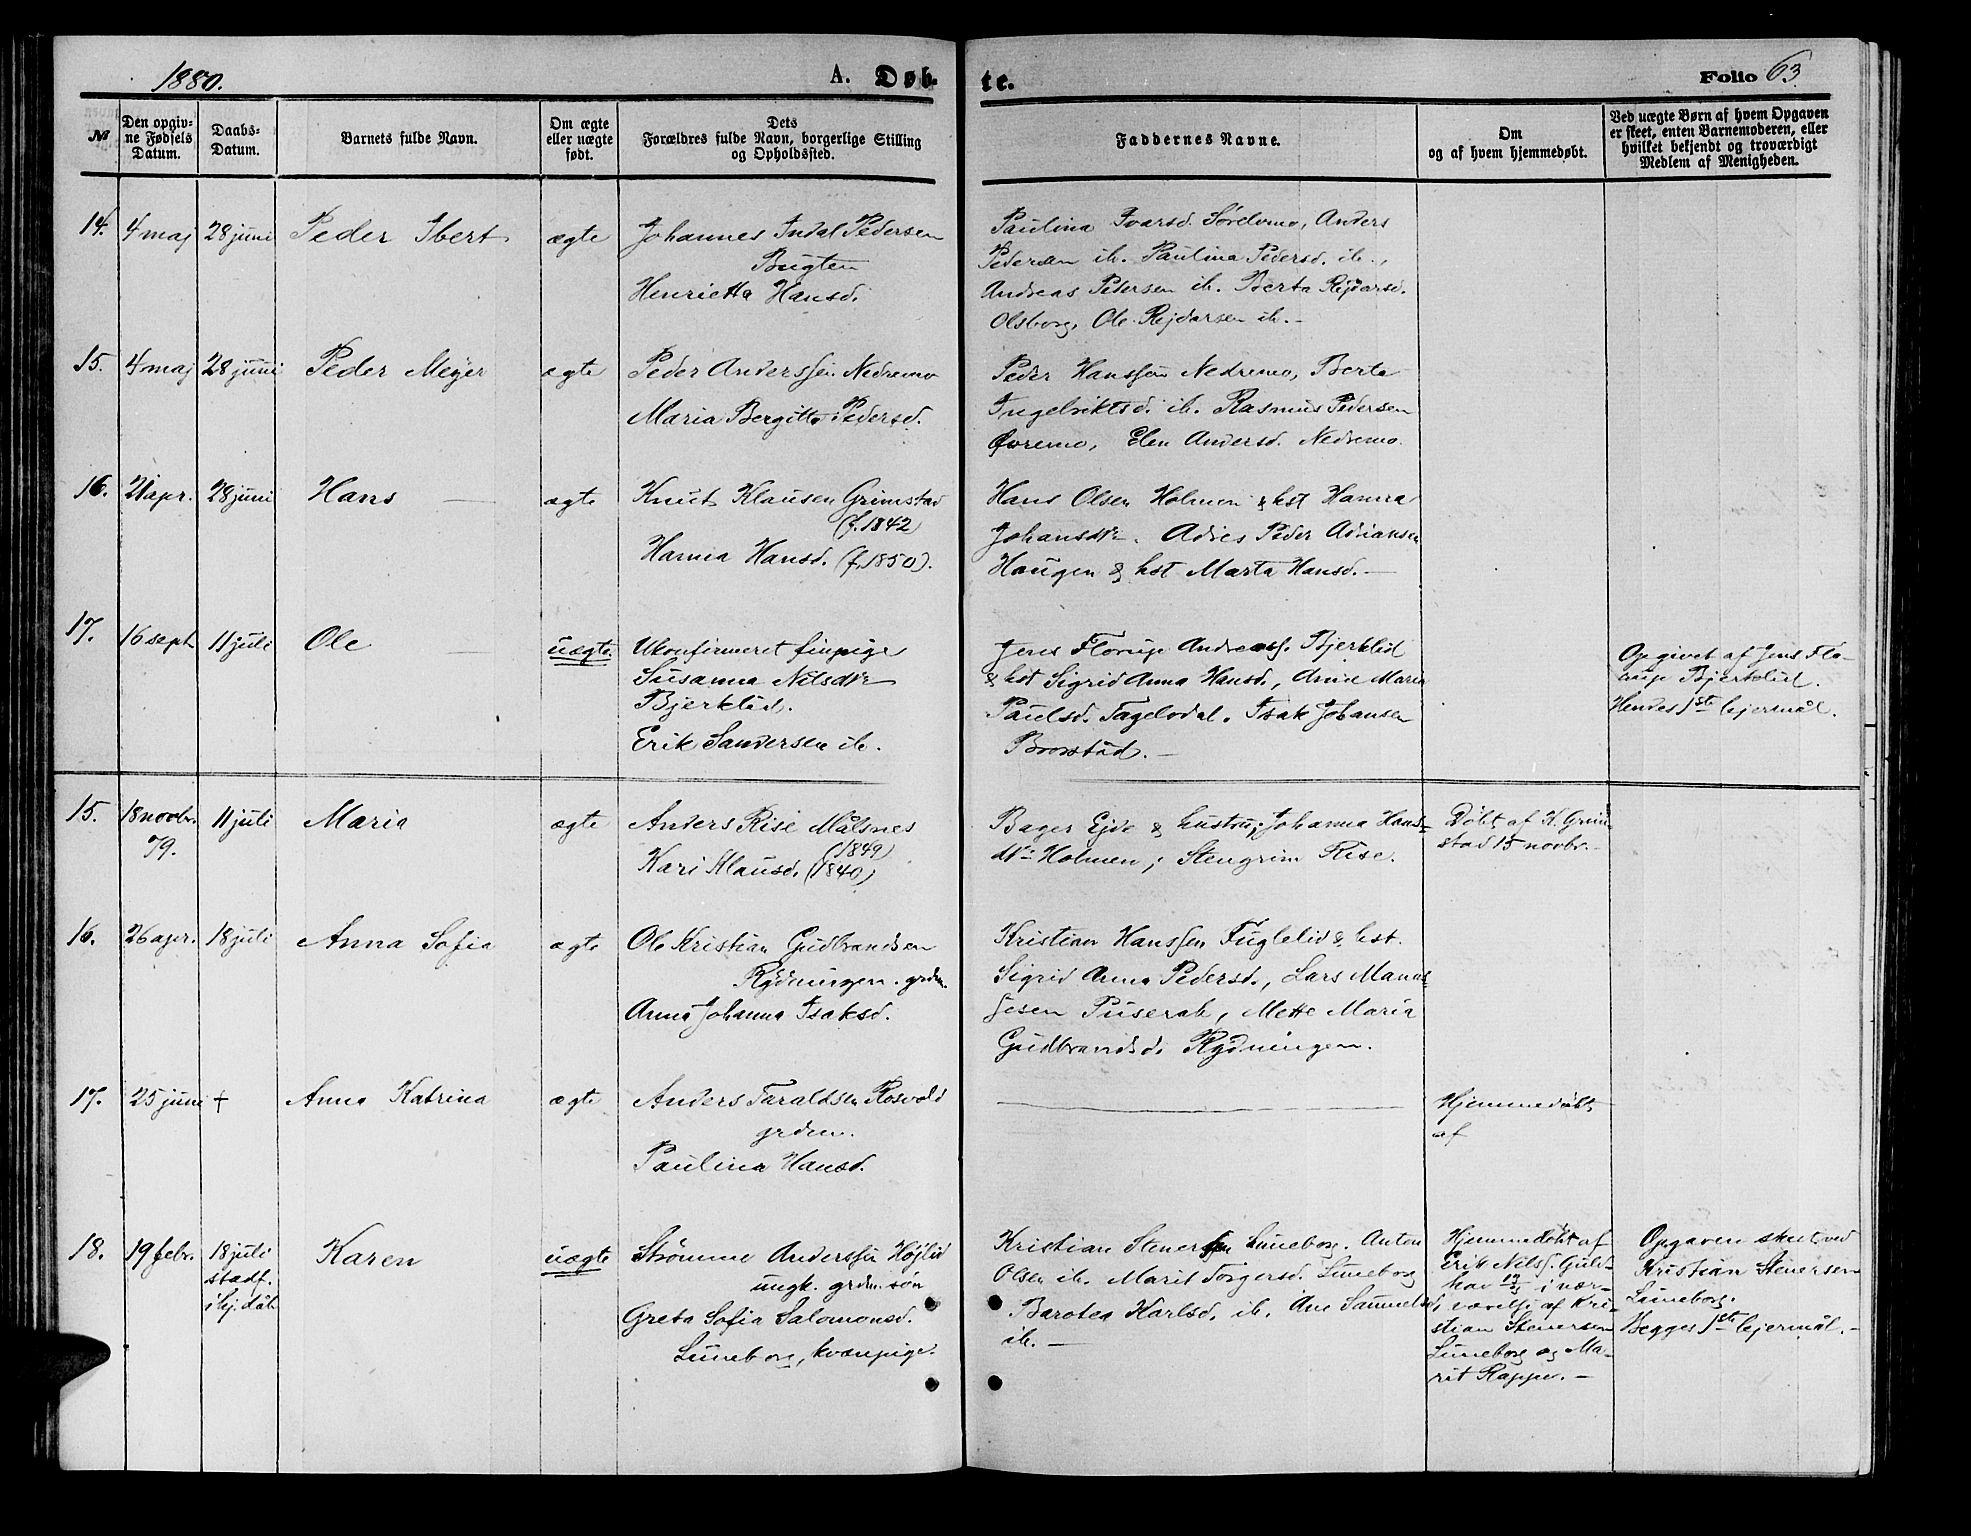 1880.
A. Døb-
te.
Folio 63
№
Den opgiv-
ne Fødsels
Datum.
Daabs-
Datum.
Barnets fulde Navn.
Om ægte
eller uægte
født.
Dets
Forældres fulde Navn, borgerlige Stilling
og Opholdssted.
Faddernes Navne.
Om
og af hvem hjemmedøbt.
Ved uægte Børn af hvem Opgaven
er skeet, enten Barnemoderen, eller
hvilket bekjendt og troværdigt
Medlem af Menigheden.
14. 4 maj 28 juni Peder Ibert ægte
Johannes Indal Pedersen
Bugten
Henrietta Hansd.
Paulina Ivarsd. Sørelvmo, Anders
Pedersen ib. Paulina Pedersd. ib.,
Andreas Pedersen ib. Berta Rejdarsd.
Olsborg, Ole Rejdarsen ib.
15. 4 maj 28 juni Peder Meyer ægte
Peder Anderssen Nedremo
Maria Bergitta Pedersd.
Peder Hanssen Nedremo, Berta
Ingebriktsd. ib. Rasmus Pedersen
Øvremo, Elen Andersd. Nedremo.
16. 21 apr. 28 juni Hans ægte
Knut Klausen Grimstad
(f. 1842)
Hanna Hansd. (f. 1850).
Hans Olsen Holmen & hst Hanna
Johansdtr. Adres Peder Adriansen
Haugen & hst Marta Hansd. —
17. 16 sept. 11 juli Ole uægte.
Ukonfirmeret finpige
Susanna Nilsdtr
Bjerklid.
Erik Sandersen ib.
Jens Florup Andreass. Bjerklid
& hst Sigrid Anna Hansd., Anne Maria
Paulsd. Fagelvdal. Isak Johansen
Brostad. —
Opgivet af Jens Flo-
rup Bjerklid.
Hendes 1ste lejermål.
15. 18 novbr. 79. 11 juli Maria ægte
Anders Rise Målsnes
(1849)
Kari Klausd. (1840)
Bager Ejde & hustru; Johanna Hans-
dtr Holmen; Stengrim Rise.
Døbt af K. Grim-
stad 15 novbr. —
16. 26 apr. 18 juli Anna Sofia ægte
Ole Kristian Gudbrandsen
Rydningen. grdm.
Anna Johanna Isaksd.
Kristian Hanssen Fuglelid & hst.
Sigrid Anna Pedersd., Lars Manas-
sesen Puserak, Mette Maria
Gudbrandsd. Rydningen.
17. 25 juni + Anna Katrina ægte
Anders Taraldsen Rosvold
grdm.
Paulina Hansd.
Hjemmedøbt
af
18. 19 febr. 18 juli
stadf.
i hj. dåb
Karen uægte
Strømme Anderssen Højlid
ungk. grdm. søn
Greta Sofia Salomonsd.
Luneborg, kvænpige.
Kristian Stenersen Luneborg. Anton
Olsen ib. Marit Torgersd. Luneborg
Barotea Karlsd. ib. Ane Samuelsd.
ib. —
Hjemmedøbt af
Erik Nilss. Guld-
hav i nær-
værelse af Kri-
stian Stenersen
Luneborg og Ma-
rit Kappe. —
Opgaven skeet ved
Kristian Stenersen
Luneborg.
Begges 1ste lejermål. —